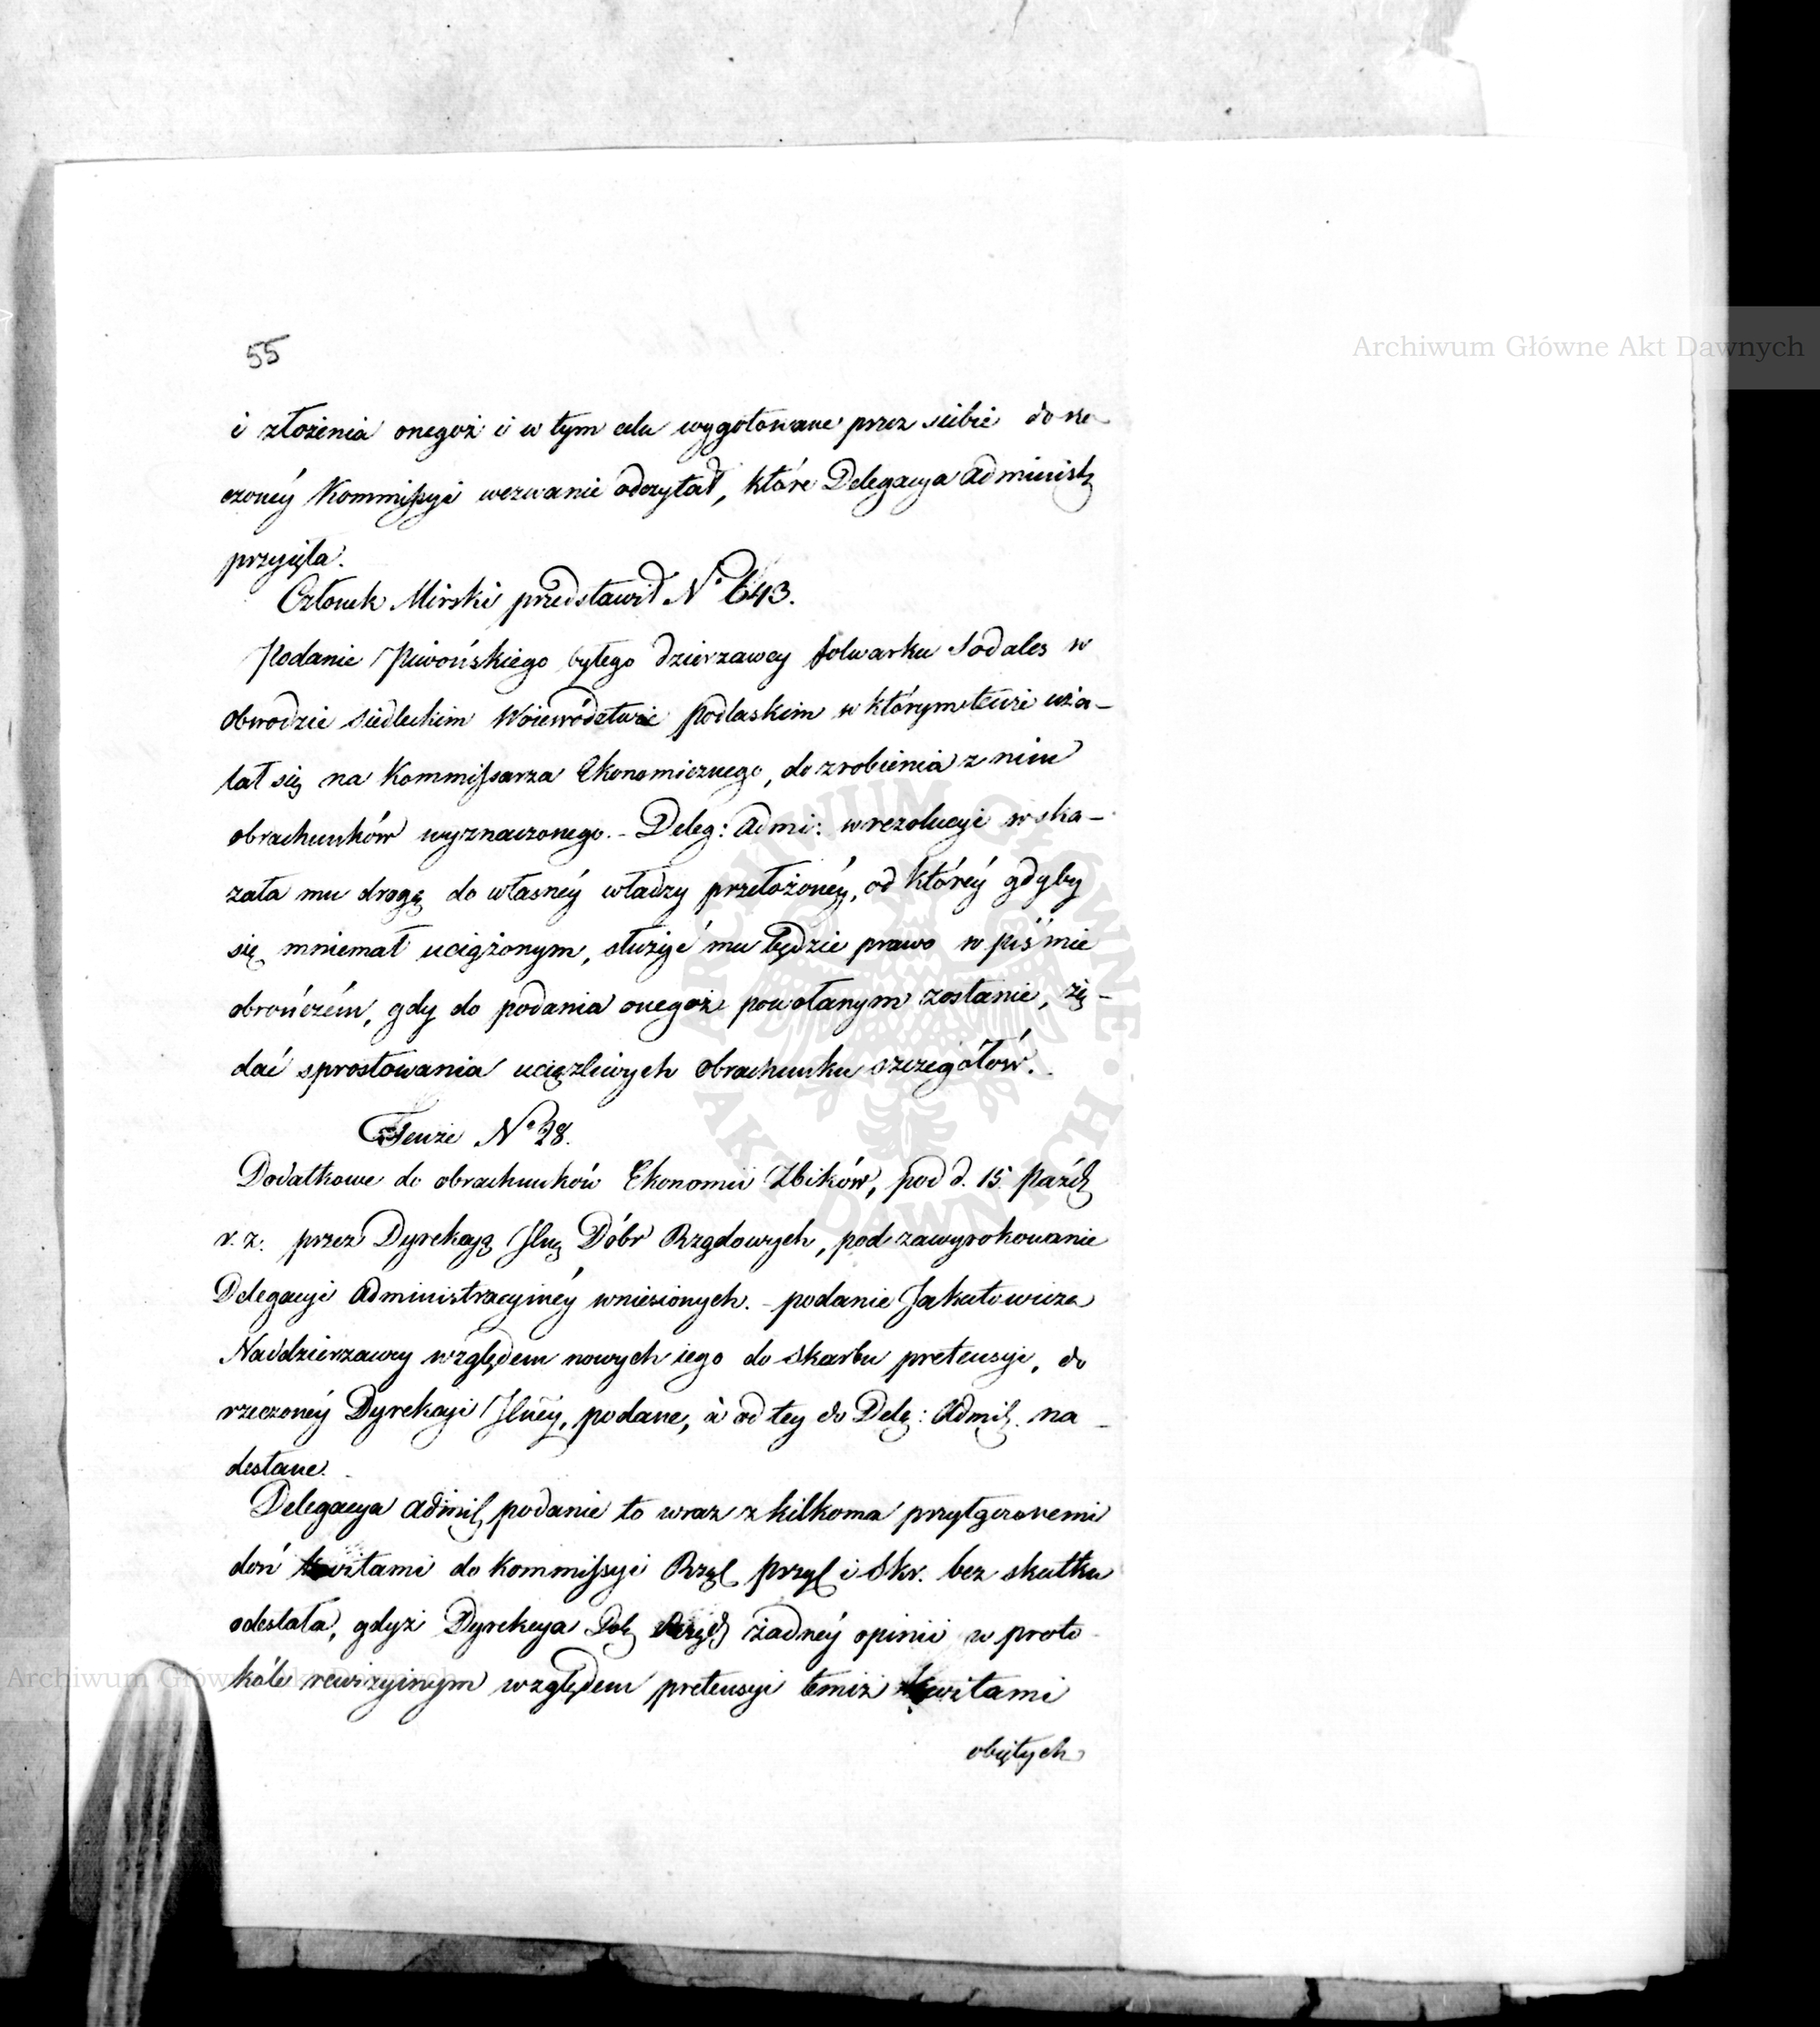 55
i złożenia onegoż i w tym celu wygotowane przez siebie do rze-
czonéy Kommissyi wezwanie odczytał, które Delegacya Administ:
przyięła.
Członek Mirski przedstawił N° 643.
Podanie Piwońskiego byłego dzierzawcy folwarku Sodales w
obwodzie siedleckim Woiewództwie podlaskim w którym tenże uża-
lał się na Kommissarza Ekonomicznego, do zrobienia z nim
obrachunków wyznaczonego. - Deleg: Admi: w rezolucyi wska-
zała mu drogę do własnéy władzy przełożonéy, od któréy gdyby
się mniemał uciążonym, służyć mu będzie prawo w piśmie
obrończém, gdy do podania onegoż powołanym zostanie, żą-
dać sprostowania uciązliwych obrachunku szczegółów.
Tenże N° 28.
Dodatkowe do obrachunków Ekonomii Zbików, pod d. 15 Paźdź
r. z. przez Dyrekcyą Jlną Dóbr Rządowych, pod zawyrokowanie
Delegacyi Administracyinéy wniesionych. - podanie Jakutowicza
Naddzierzawcy względem nowych iego do Skarbu pretensyi, do
rzeczonéy Dyrekcyi Jlnéy, podane, à od tey do Dele: Admi: na-
desłane.
Delegacya Admi: podanie to wraz z kilkoma przyłączonemi
doń kwitami do Kommissyi Rząd przyl i Skr. bez skutku
odesłała, gdyż Dyrekcya Dob Rząd żadnéy opinii w proto
kóle rewizyinym względem pretensyi temiż kwitami
obiętych
Archiwum Główne Akt Dawnych
Archiwum Główne Akt Dawnych
ARCHIWUM GŁÓWNE AKT DAWNYCH · W